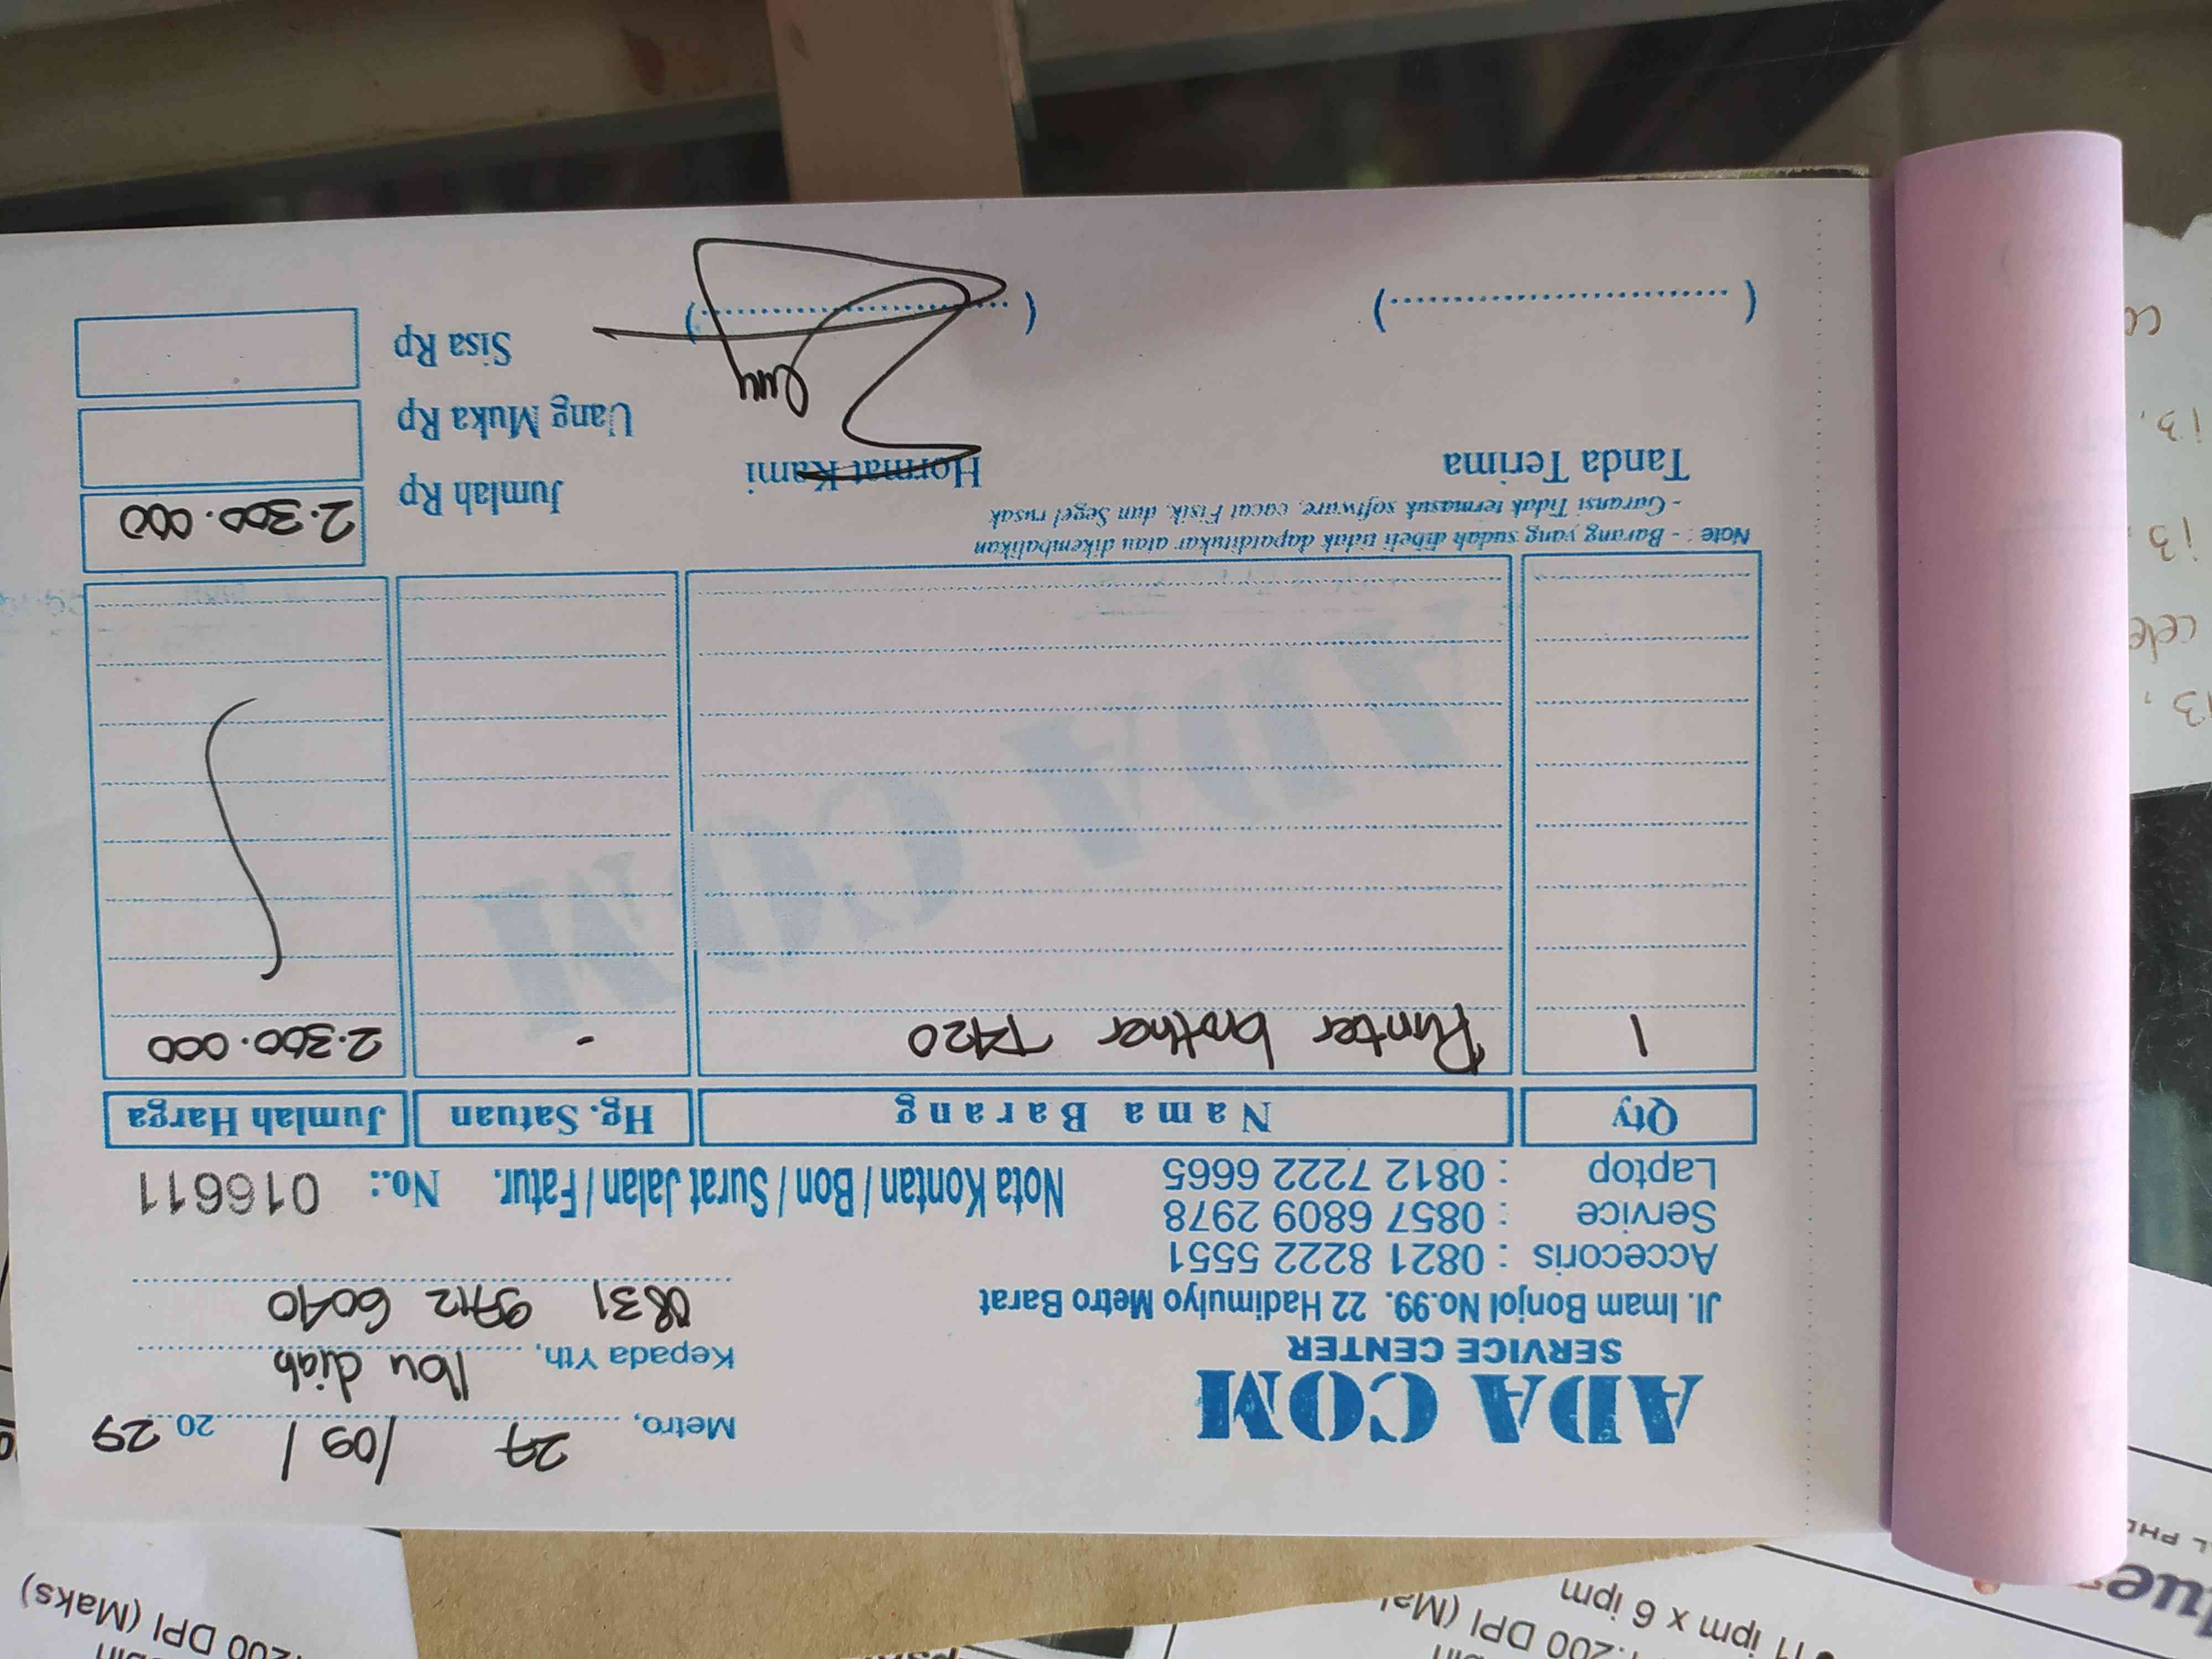 ADA COM
SERVICE CENTER
Jl. Imam Bonjol No.99. 22 Hadimulyo Metro Barat
Accecoris : 0821 8222 5551
Service : 0857 6809 2978
Laptop : 0812 7222 6665
Metro, 27 / 09 / 20 29
Kepada Yth, Ibu diah
0831 9712 6040
Nota Kontan / Bon / Surat Jalan / Fatur. No.: 016611
Qty Nama Barang Hg. Satuan Jumlah Harga
1 Printer brother T420 - 2.300.000
ADA COM
Note : - Barang yang sudah dibeli tidak dapat ditukar atau dikembalikan
- Garansi Tidak termasuk software, cacat Fisik, dan Segel rusak
Tanda Terima
Hormat Kami
Jumlah Rp 2.300.000
Uang Muka Rp
Sisa Rp
(....................) (....................)
11 ipm x 6 ipm
200 DPI (Maks)